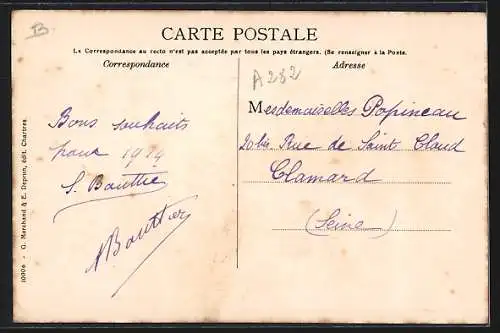 B
CARTE POSTALE
La Correspondance au recto n'est pas acceptée par tous les pays étrangers. (Se renseigner à la Poste.
Correspondance
Adresse
A 282
Bons souhaits
pour 1914
S. Bauthie
Bauthier
Mesdemoiselles Popineau
20 bis Rue de Saint Cloud
Clamard
(Seine)
10906 - G. Marchand & E. Deprun, édit. Chartres.